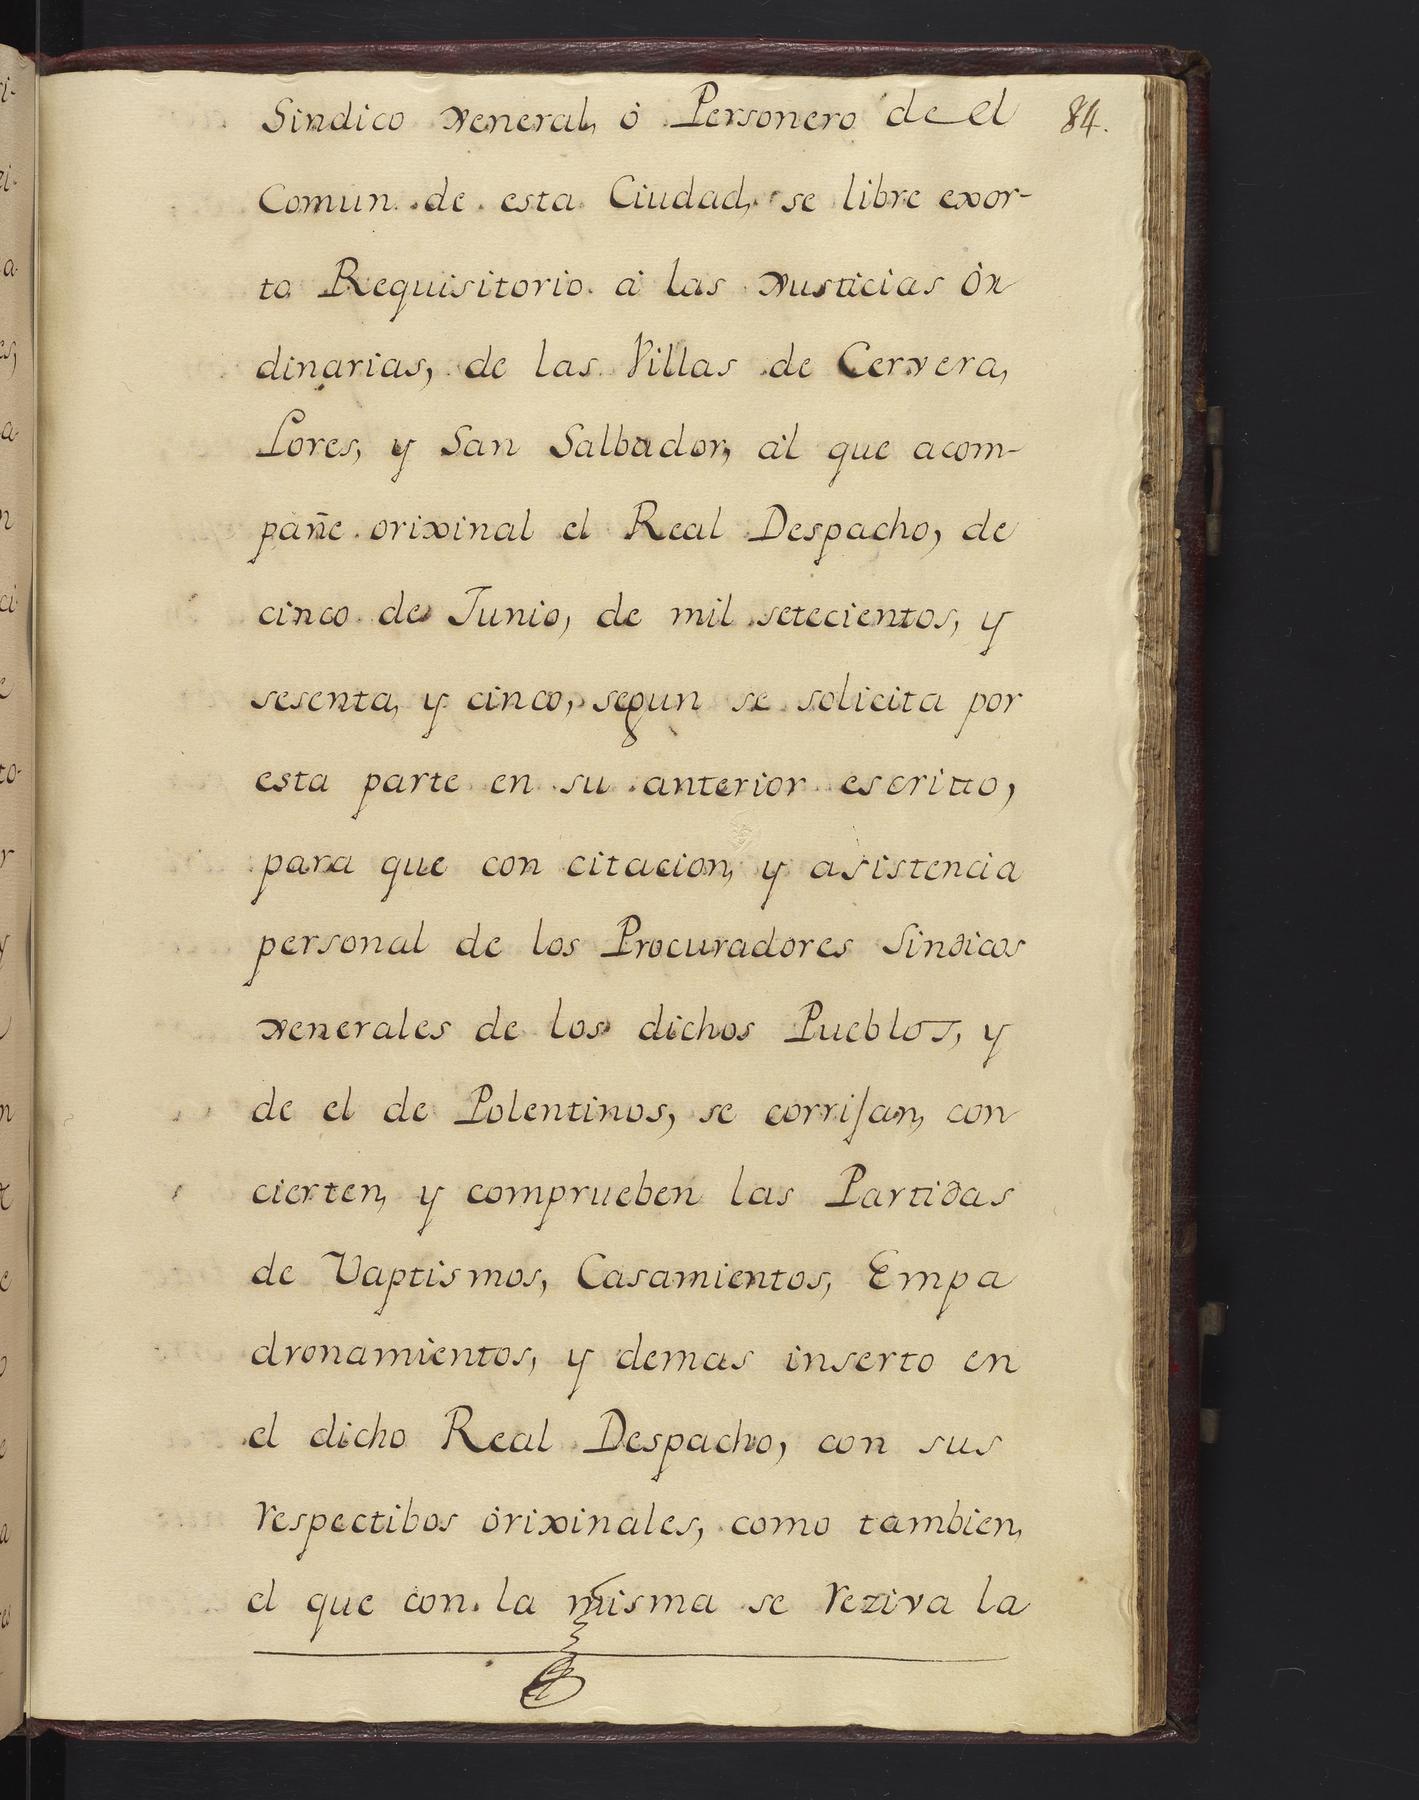 Sindico xeneral, ó Personero de el
84.
Comun de esta Ciudad, se libre exor-
to Requisitorio á las xusticias ór
dinarias, de las Villas de Cervera,
Lores, y San Salbador, ál que acom-
pañe orixinal el Real Despacho, de
cinco de Junio, de mil setecientos, y
sesenta, y cinco, segun se solicita por
esta parte en su anterior escritto,
para que con citacion, y asistencia
personal de los Procuradores Sindicos
xenerales de los dichos Pueblos, y
de el de Polentinos, se corrijan, con
cierten, y comprueben las Partidas
de Vaptismos, Casamientos, Empa
dronamientos, y demas inserto en
el dicho Real Despacho, con sus
respectibos órixinales, como tambien,
el que con la misma se reziva la